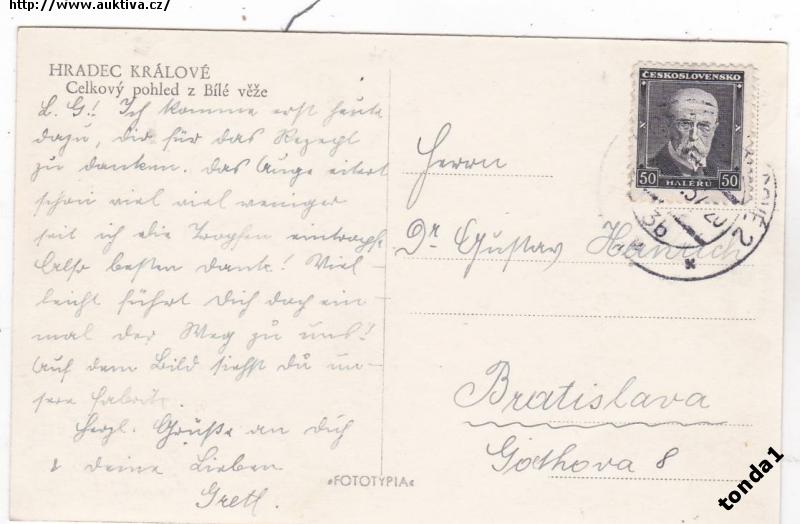 http://www.auktiva.cz/
HRADEC KRÁLOVÉ
Celkový pohled z Bílé věže
L. G.! Ich komme erst heute
dazu, dir für das Rezept
zu danken. Das Auge eitert
schon viel viel weniger
seit ich die Tropfen eintropfe
Also besten Dank! Viel-
leicht führt Dich doch ein-
mal der Weg zu uns!
Auf dem Bild siehst du un-
sere Fabrik.
Herzl. Grüße an Dich
& deine Lieben
Gretl.
ČESKOSLOVENSKO
50 HALÉRŮ 50
Herrn
Dr Gustav
Bratislava
Gothova 8
•FOTOTYPIA•
tonda1